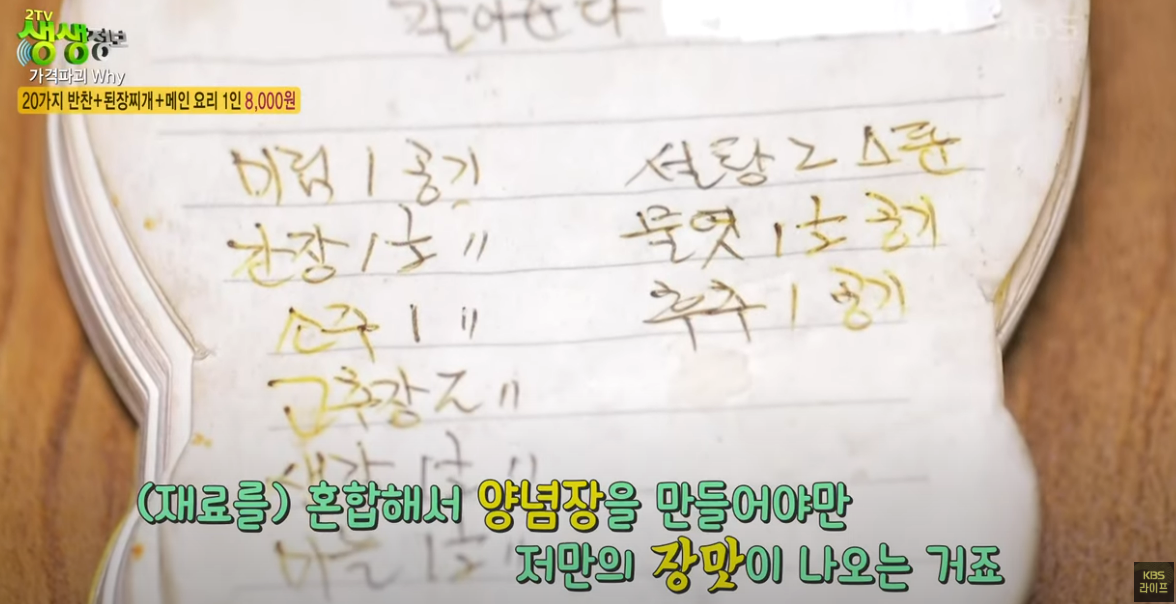 2TV
생생정보
가격파괴 Why
20가지 반찬+된장찌개+메인 요리 1인 8,000원
KBS
갈아준다
미림 1 공기
간장 1½ 〃
소주 1 〃
고추장 2 〃
생강 1½ 〃
마늘 1½ 〃
설탕 2 스푼
물엿 1½ 공기
후추 1 공기
(재료를) 혼합해서 양념장을 만들어야만
저만의 장맛이 나오는 거죠
KBS
라이프